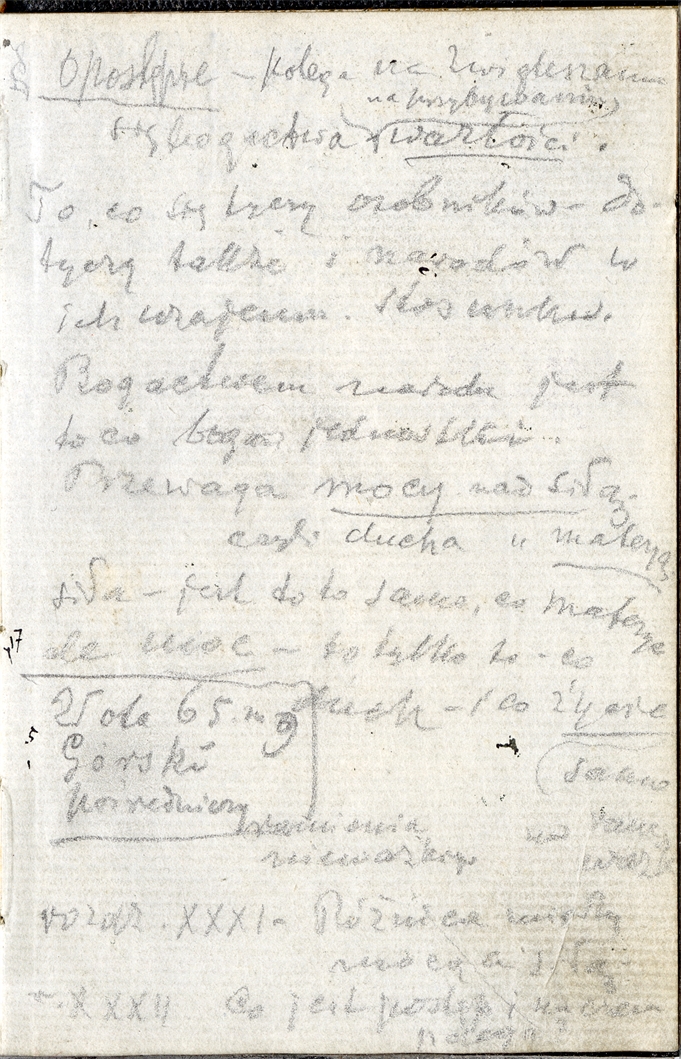 § O postępie – Polega na zwiększaniu
na przybywaniu
się bogactwa wartości.
To, co się tyczy osobników – do-
tyczy także i narodów w
ich wzajemn. stosunku.
Bogactwem narodu jest
to co jednostki
Przewaga mocy nad siłą,
czyli ducha " materyą
siła – jest to to samo, co materye
ale moc – to tylko to – co
duch – i co życie
Wola 65. m 9
Górski
pośredniczy
samo
ramienia
rozdz. XXXI – Różnica między
mocą a siłą
r. XXXII Co jest postęp i na czem
polega